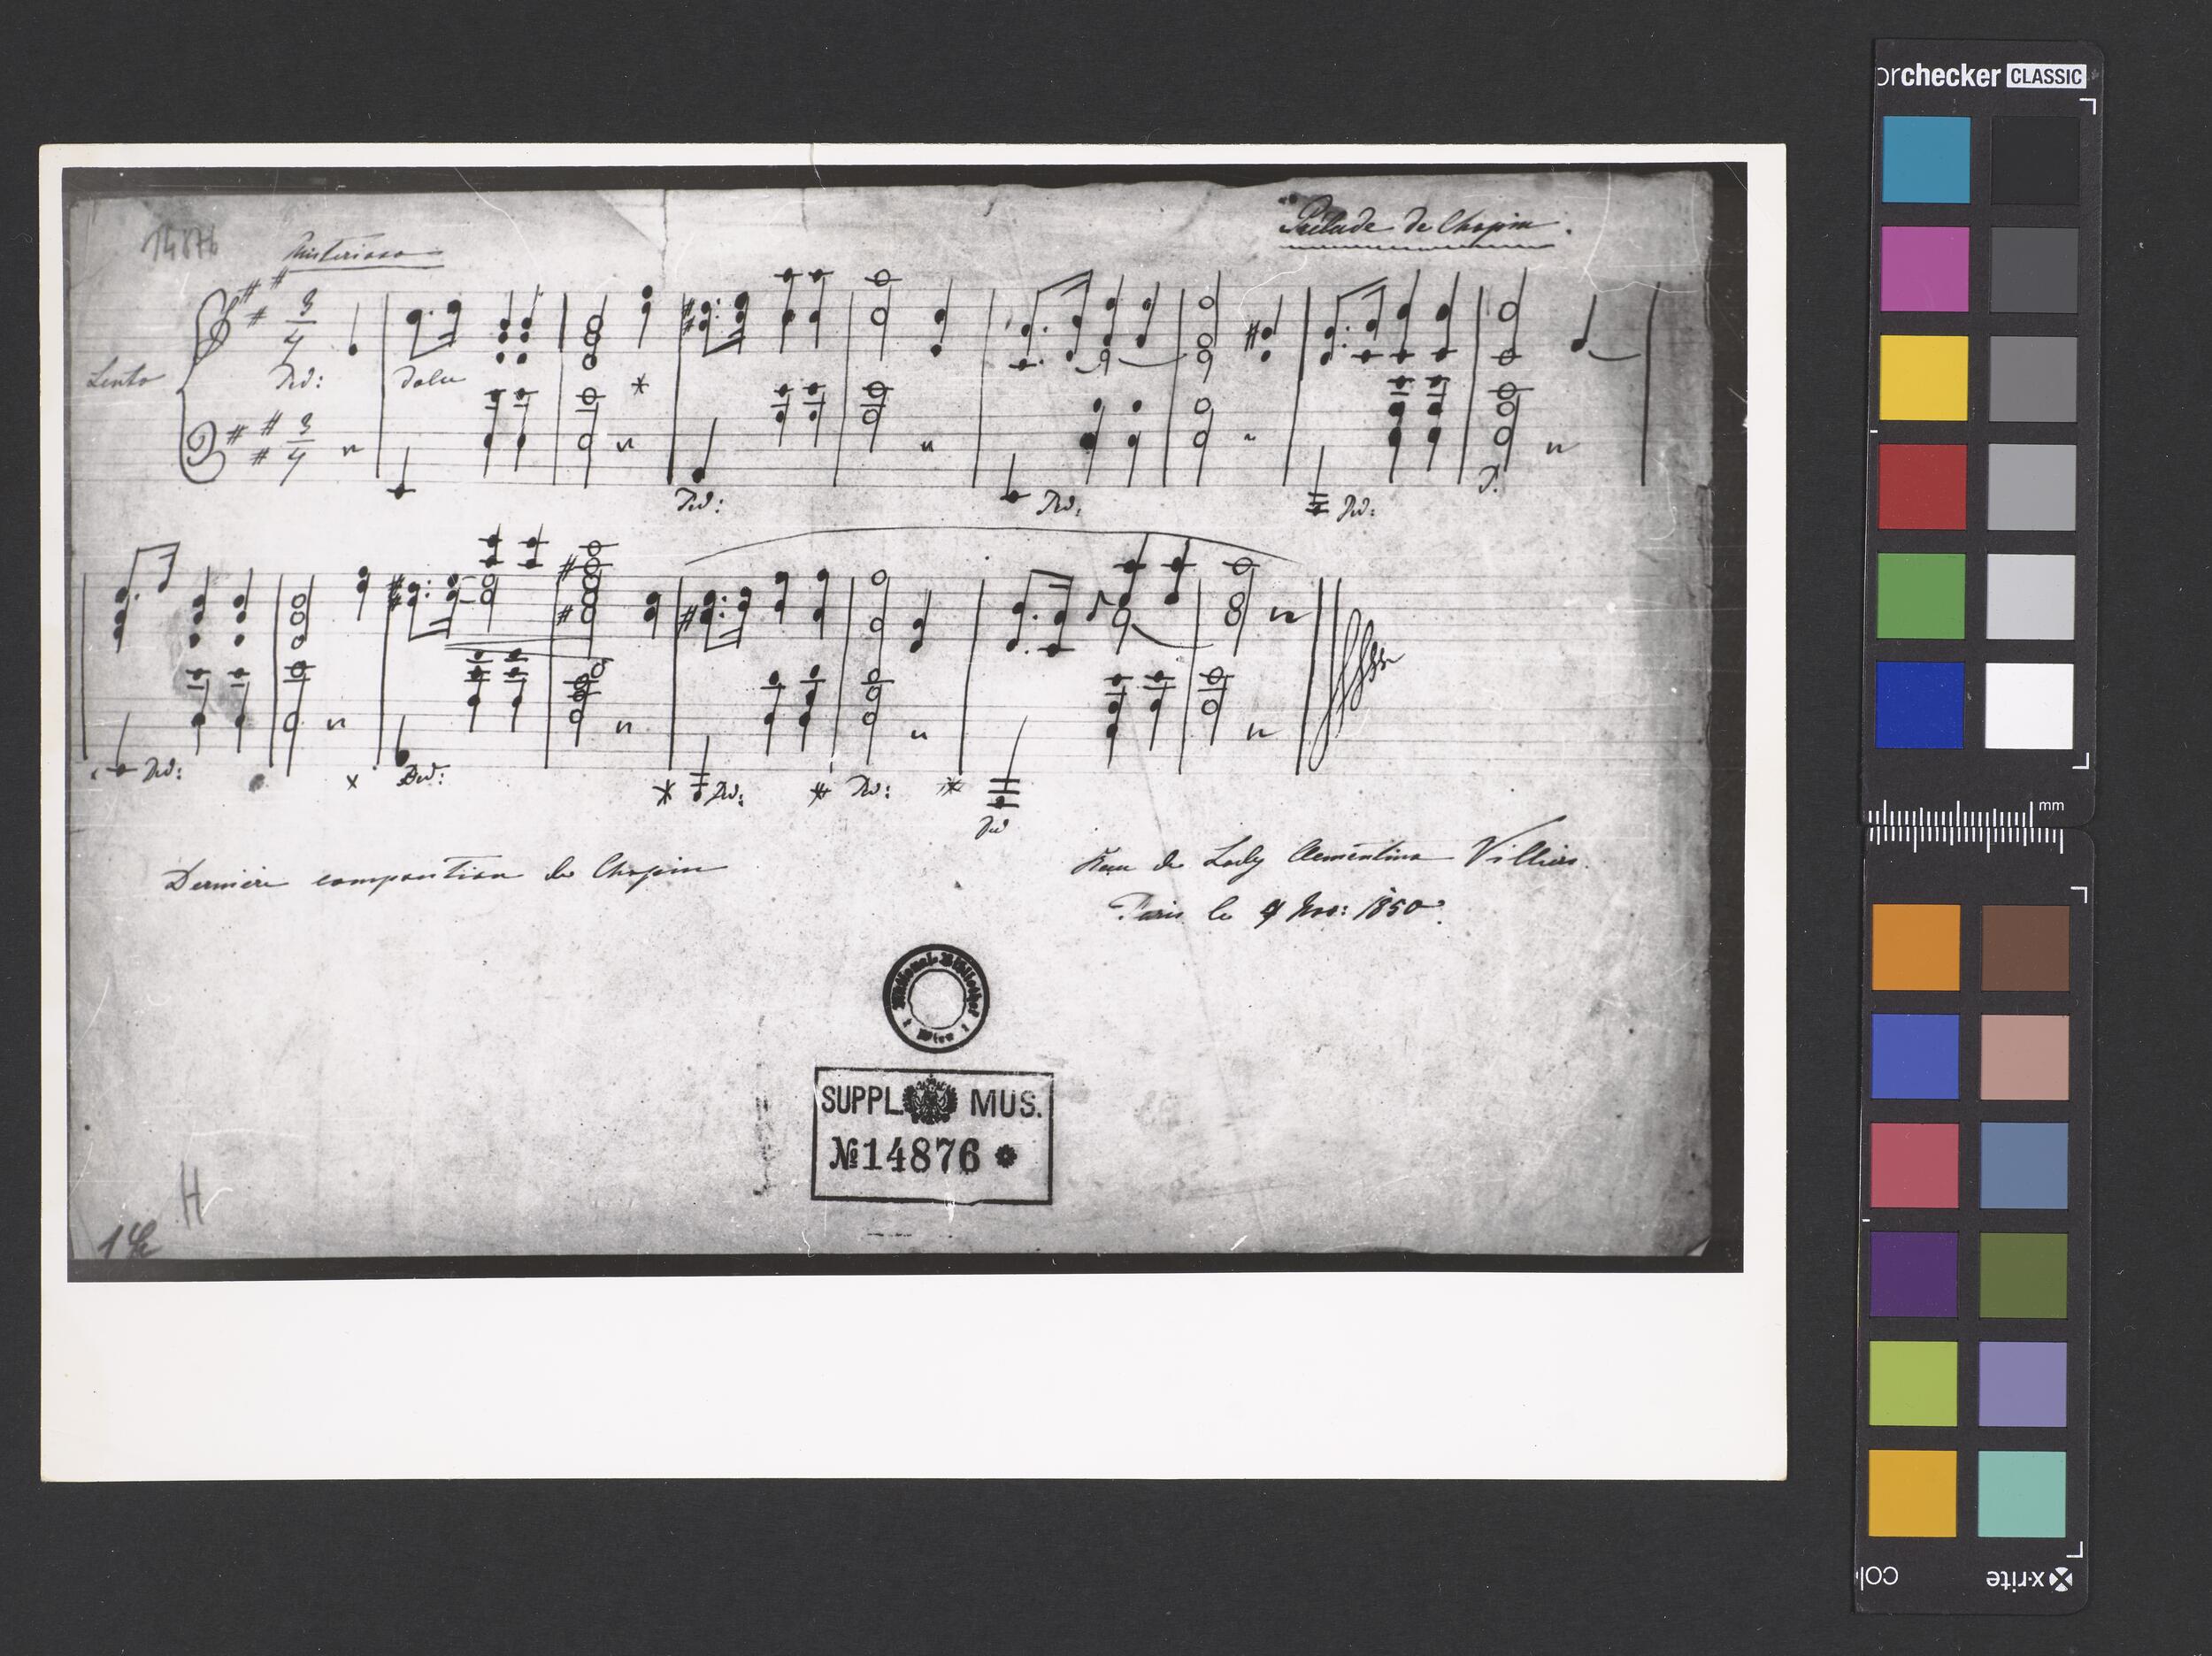 14876
Misterioso
Prélude de Chopin.
Lento
3
4
Ped:
dolce
3
4
Ped:
Ped:
Ped:
P.
Ped:
Ped:
Ped:
Ped:
Ped
Dernière composition de Chopin
de Lady Clementina Villiers.
Paris le 9 Nov: 1850.
National-Bibliothek
Wien
SUPPL. MUS.
№14876 *
H
orchecker CLASSIC
mm
x-rite
col